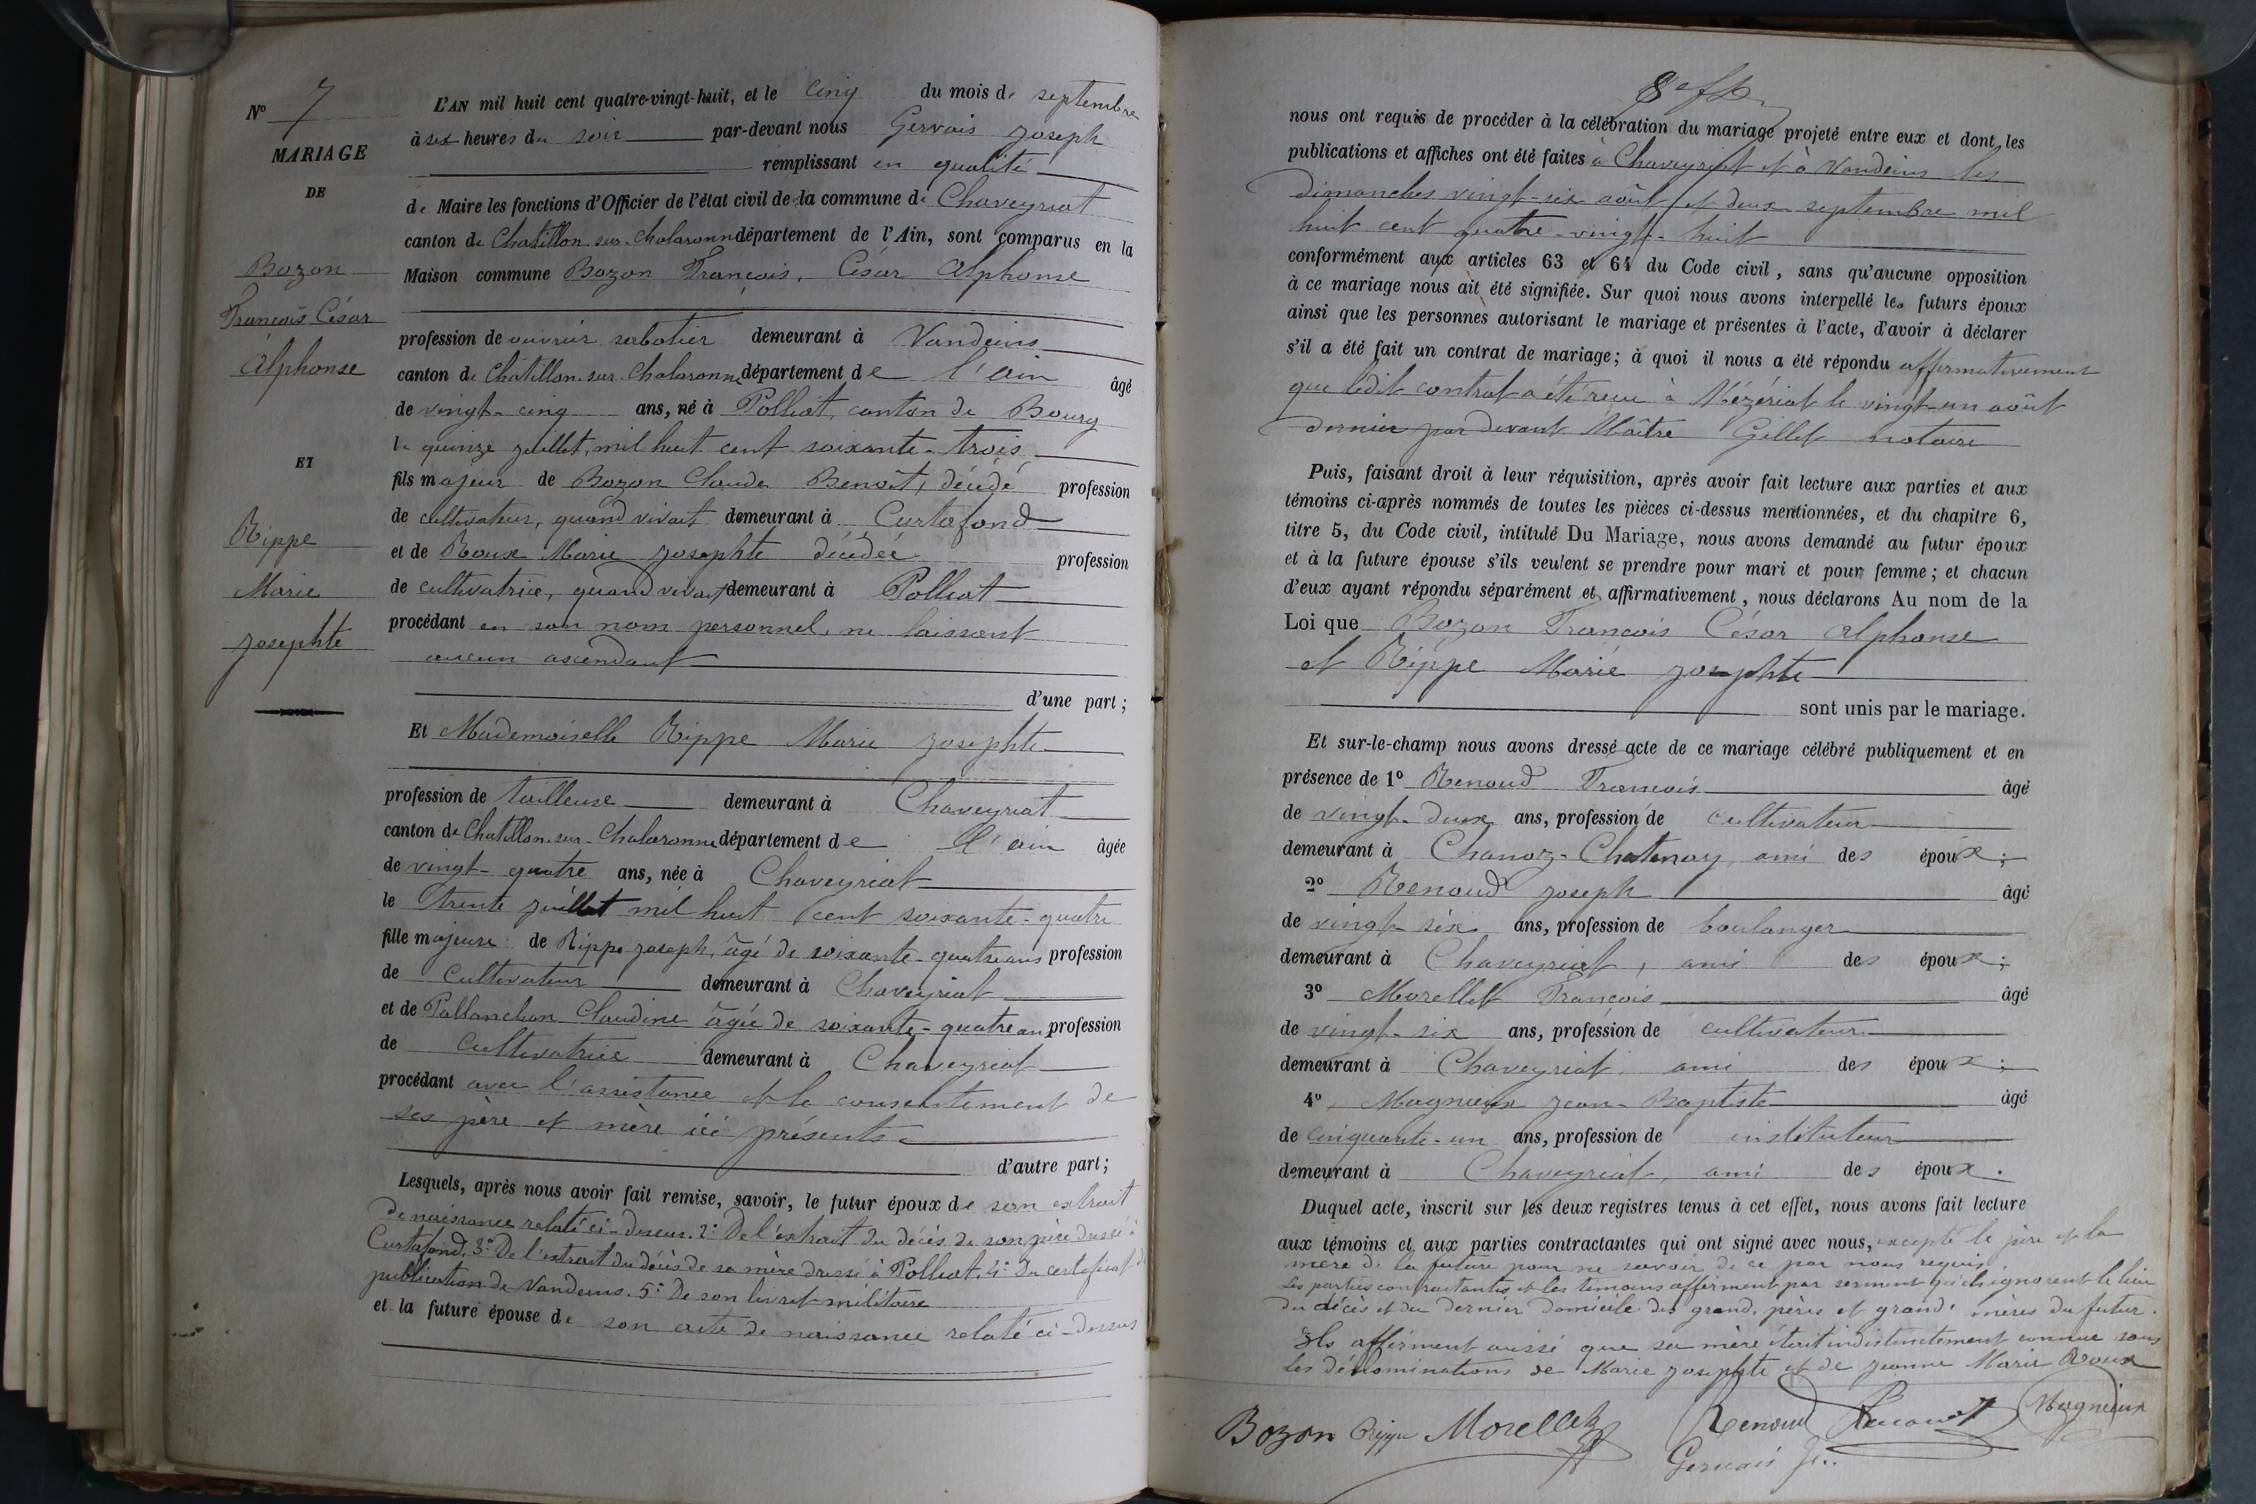 N° 7
MARIAGE
DE
Bozon
François César
Alphonse
ET
Rippe
Marie
Josephte
L'AN mil huit cent quatre-vingt-huit, et le cinq du mois de septembre
à six heures du soir par-devant nous Gervais Joseph
remplissant en qualité
de Maire les fonctions d'Officier de l'état civil de la commune de Chaveyriat
canton de Chatillon-sur-Chalaronne département de l'Ain, sont comparus en la
Maison commune Bozon François, César Alphonse
profession de ouvrier sabotier demeurant à Vandeins
canton de Chatillon-sur-Chalaronne département de l'ain âgé
de vingt-cinq ans, né à Polliat, canton de Bourg
le quinze juillet, mil huit cent soixante-trois
fils majeur de Bozon Claude Benoit, décédé profession
de cultivateur, quand vivait demeurant à Curtafond
et de Roux Marie Josephte décédée profession
de cultivatrice, quand vivait demeurant à Polliat
procédant en son nom personnel, ne laissant
aucun ascendant
d'une part;
Et Mademoiselle Rippe Marie Josephte
profession de tailleuse demeurant à Chaveyriat
canton de Chatillon-sur-Chalaronne département de l'ain âgée
de vingt-quatre ans, née à Chaveyriat
le trente juillet mil huit cent soixante-quatre
fille majeure de Rippe Joseph, âgé de soixante-quatre ans profession
de cultivateur demeurant à Chaveyriat
et de Pallanchon Claudine âgée de soixante-quatre ans profession
de cultivatrice demeurant à Chaveyriat
procédant avec l'assistance et le consentement de
ses père et mère ici présents
d'autre part;
Lesquels, après nous avoir fait remise, savoir, le futur époux de son extrait
de naissance relaté ci-dessus. 2° De l'extrait du décès de son père dressé à
Curtafond. 3° De l'extrait du décès de sa mère dressé à Polliat. 4° Du certificat de
publication de Vandeins. 5° De son livret militaire
et la future épouse de son acte de naissance relaté ci-dessus
nous ont requis de procéder à la célébration du mariage projeté entre eux et dont les
publications et affiches ont été faites à Chaveyriat et à Vandeins les
dimanches vingt-six août et deux septembre mil
huit cent quatre-vingt-huit
conformément aux articles 63 et 64 du Code civil, sans qu'aucune opposition
à ce mariage nous ait été signifiée. Sur quoi nous avons interpellé les futurs époux
ainsi que les personnes autorisant le mariage et présentes à l'acte, d'avoir à déclarer
s'il a été fait un contrat de mariage; à quoi il nous a été répondu affirmativement
que ledit contrat a été reçu à Mézériat le vingt-un août
dernier par devant Maître Gellet notaire
Puis, faisant droit à leur réquisition, après avoir fait lecture aux parties et aux
témoins ci-après nommés de toutes les pièces ci-dessus mentionnées, et du chapitre 6,
titre 5, du Code civil, intitulé Du Mariage, nous avons demandé au futur époux
et à la future épouse s'ils veulent se prendre pour mari et pour femme; et chacun
d'eux ayant répondu séparément et affirmativement, nous déclarons Au nom de la
Loi que Bozon François César Alphonse
et Rippe Marie Josephte
sont unis par le mariage.
Et sur-le-champ nous avons dressé acte de ce mariage célébré publiquement et en
présence de 1° Renoud François âgé
de vingt-deux ans, profession de cultivateur
demeurant à Chanoz-Chatenay, ami des époux;
2° Renoud Joseph âgé
de vingt-six ans, profession de boulanger
demeurant à Chaveyriat, ami des époux;
3° Morellet François âgé
de vingt-six ans, profession de cultivateur
demeurant à Chaveyriat, ami des époux;
4° Magnieux Jean-Baptiste âgé
de cinquante-un ans, profession de instituteur
demeurant à Chaveyriat, ami des époux.
Duquel acte, inscrit sur les deux registres tenus à cet effet, nous avons fait lecture
aux témoins et aux parties contractantes qui ont signé avec nous, excepté le père et la
mère de la future pour ne savoir de ce par nous requis
Les parties contractantes et les témoins affirment par serment qu'ils ignorent le lieu
du décès et du dernier domicile des grands pères et grand'mères du futur.
Ils affirment aussi que sa mère était indistinctement connue sous
les dénominations de Marie Josephte et de Jeanne Marie Roux
Bozon Rippe Morellet Renoud Renoud Magnieux
Gervais